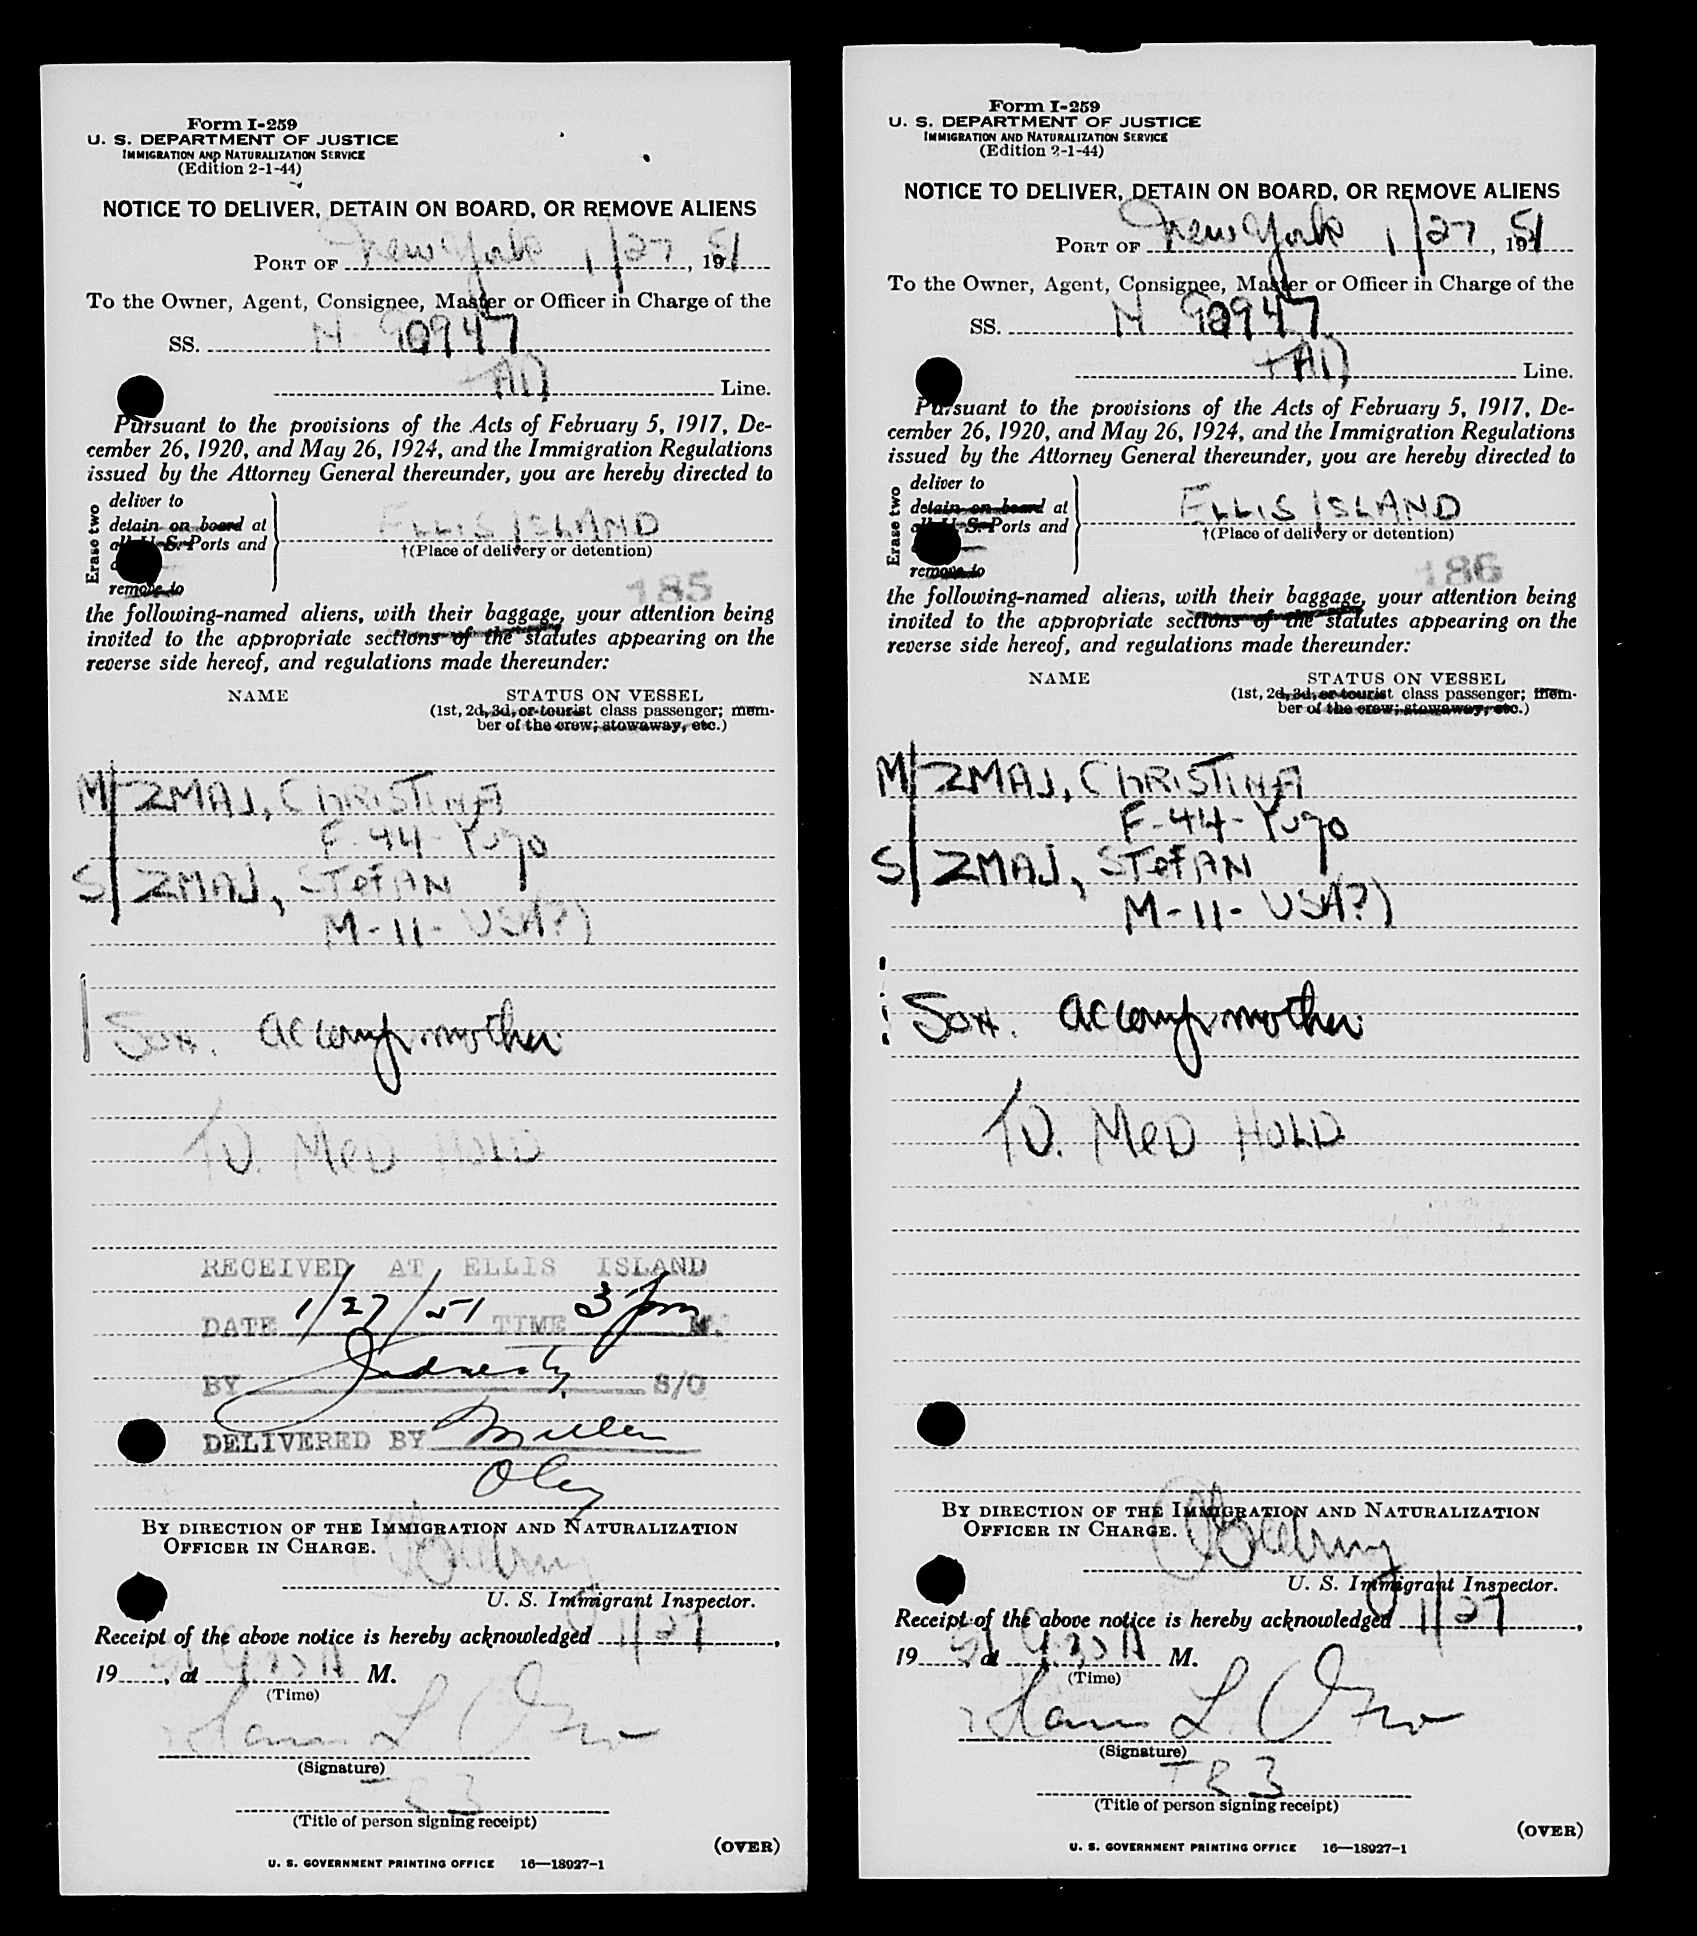 Form I-259
U. S. DEPARTMENT OF JUSTICE
IMMIGRATION AND NATURALIZATION SERVICE
(Edition 2-1-44)
NOTICE TO DELIVER, DETAIN ON BOARD, OR REMOVE ALIENS
PORT OF New York 1/27, 1951
To the Owner, Agent, Consignee, Master or Officer in Charge of the
SS. N 90947
Line.
Pursuant to the provisions of the Acts of February 5, 1917, De-
cember 26, 1920, and May 26, 1924, and the Immigration Regulations
issued by the Attorney General thereunder, you are hereby directed to
Erase two
deliver to
detain on board at
all U. S. Ports and
remove to
ELLIS ISLAND
†(Place of delivery or detention)
185
the following-named aliens, with their baggage, your attention being
invited to the appropriate sections of the statutes appearing on the
reverse side hereof, and regulations made thereunder:
NAME
STATUS ON VESSEL
(1st, 2d, 3d, or tourist class passenger; mem-
ber of the crew; stowaway, etc.)
M/ ZMAJ, CHRISTINA
F-44-Yugo
S/ ZMAJ, STEFAN
M-11-USA?)
Son. accomp mother
TD. MED HOLD
RECEIVED AT ELLIS ISLAND
DATE 1/27/51 TIME 3 pm M.
BY S/O
DELIVERED BY Mullen
Oley
BY DIRECTION OF THE IMMIGRATION AND NATURALIZATION
OFFICER IN CHARGE.
U. S. Immigrant Inspector.
Receipt of the above notice is hereby acknowledged 1/27,
1951, at M.
(Time)
(Signature)
(Title of person signing receipt)
(OVER)
U. S. GOVERNMENT PRINTING OFFICE 16—18927-1
Form I-259
U. S. DEPARTMENT OF JUSTICE
IMMIGRATION AND NATURALIZATION SERVICE
(Edition 2-1-44)
NOTICE TO DELIVER, DETAIN ON BOARD, OR REMOVE ALIENS
PORT OF New York 1/27, 1951
To the Owner, Agent, Consignee, Master or Officer in Charge of the
SS. N 90947
Line.
Pursuant to the provisions of the Acts of February 5, 1917, De-
cember 26, 1920, and May 26, 1924, and the Immigration Regulations
issued by the Attorney General thereunder, you are hereby directed to
Erase two
deliver to
detain on board at
all U. S. Ports and
remove to
ELLIS ISLAND
†(Place of delivery or detention)
186
the following-named aliens, with their baggage, your attention being
invited to the appropriate sections of the statutes appearing on the
reverse side hereof, and regulations made thereunder:
NAME
STATUS ON VESSEL
(1st, 2d, 3d, or tourist class passenger; mem-
ber of the crew; stowaway, etc.)
M/ ZMAJ, CHRISTINA
F-44-Yugo
S/ ZMAJ, STEFAN
M-11-USA?)
Son. accomp mother
TD. MED HOLD
BY DIRECTION OF THE IMMIGRATION AND NATURALIZATION
OFFICER IN CHARGE.
U. S. Immigrant Inspector.
Receipt of the above notice is hereby acknowledged 1/27,
1951, at M.
(Time)
(Signature)
(Title of person signing receipt)
(OVER)
U. S. GOVERNMENT PRINTING OFFICE 16—18927-1